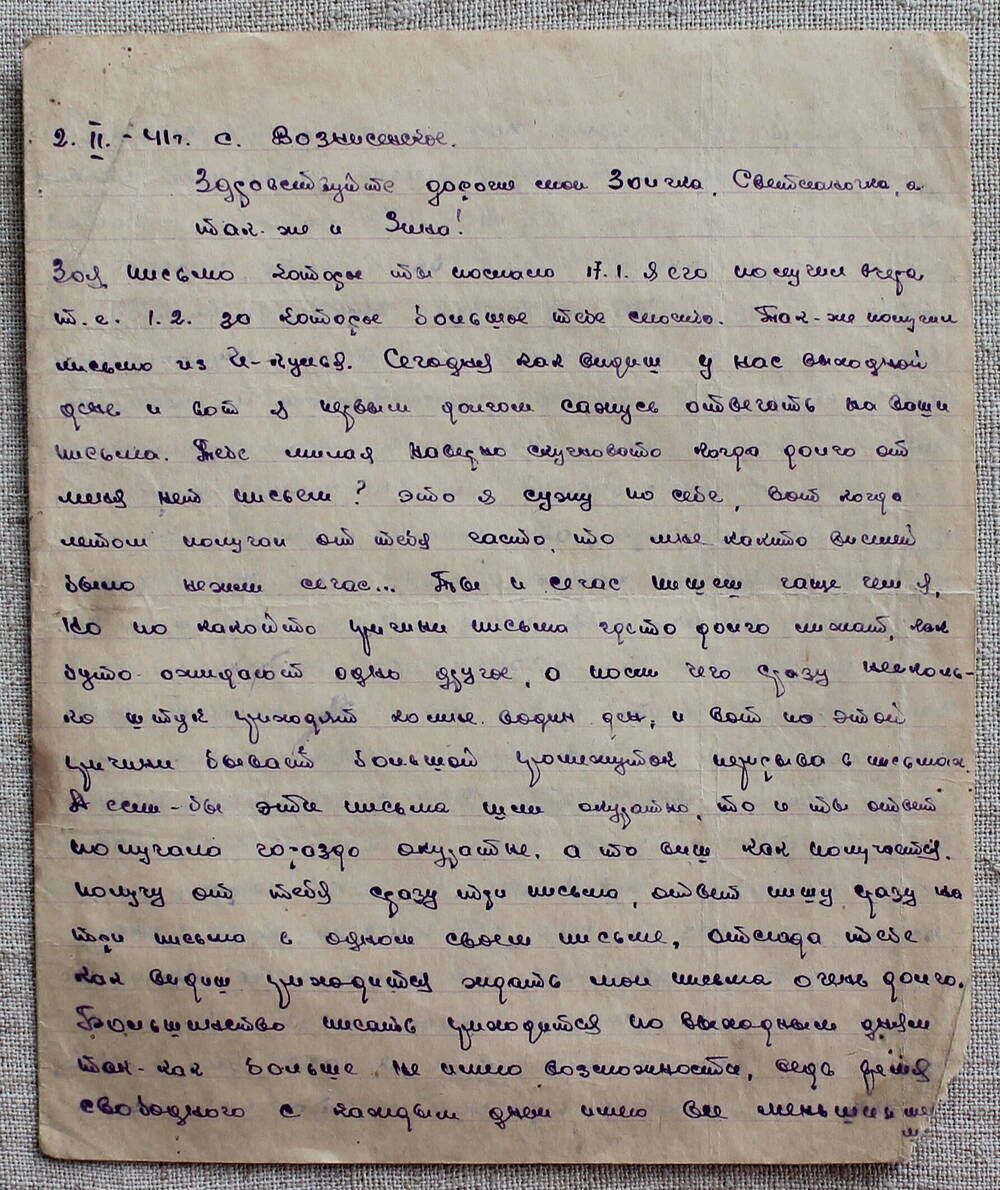 2. II. - 41г. с. Вознисенское.
Здравствуйте дорогие мои Зоичка, Светланочка, а
так-же и Зина!
Зоя письмо которое ты послала 17.1. я его получил вчера
т.е. 1.2. за которое большое тебе спасибо. Так-же получил
письмо из
Сегодня как видиш у нас выходной
день и вот я первым долгом сажусь отвечать на ваши
письма. Тебе милая наверно скучновато когда долго от
меня нет писем? это я сужу по себе, вот когда
летом получал от тебя часто, то мне какито
было нежели сечас... Ты и сечас пишеш чаще чем я,
но по какойто причине письма часто долго лижат, как
буто ожидают одно другое, а после чего сразу несколь-
ко штук приходят комне водин день, и вот по этой
причини бывает большой промижуток перерыва в письмах.
А если-бы эти письма шли акуратно, то и ты ответ
получала гораздо акуратне, а то виш как получается.
Получу от тебя сразу три письма, ответ пишу сразу на
три письма в одном своем письме, отсюда тебе
как видиш приходится ждать мои письма очень долго.
Большинство писать приходится по выходным дням
так-как больше не имею возможности, ведь время
свободного с каждым днем имею все меньше и